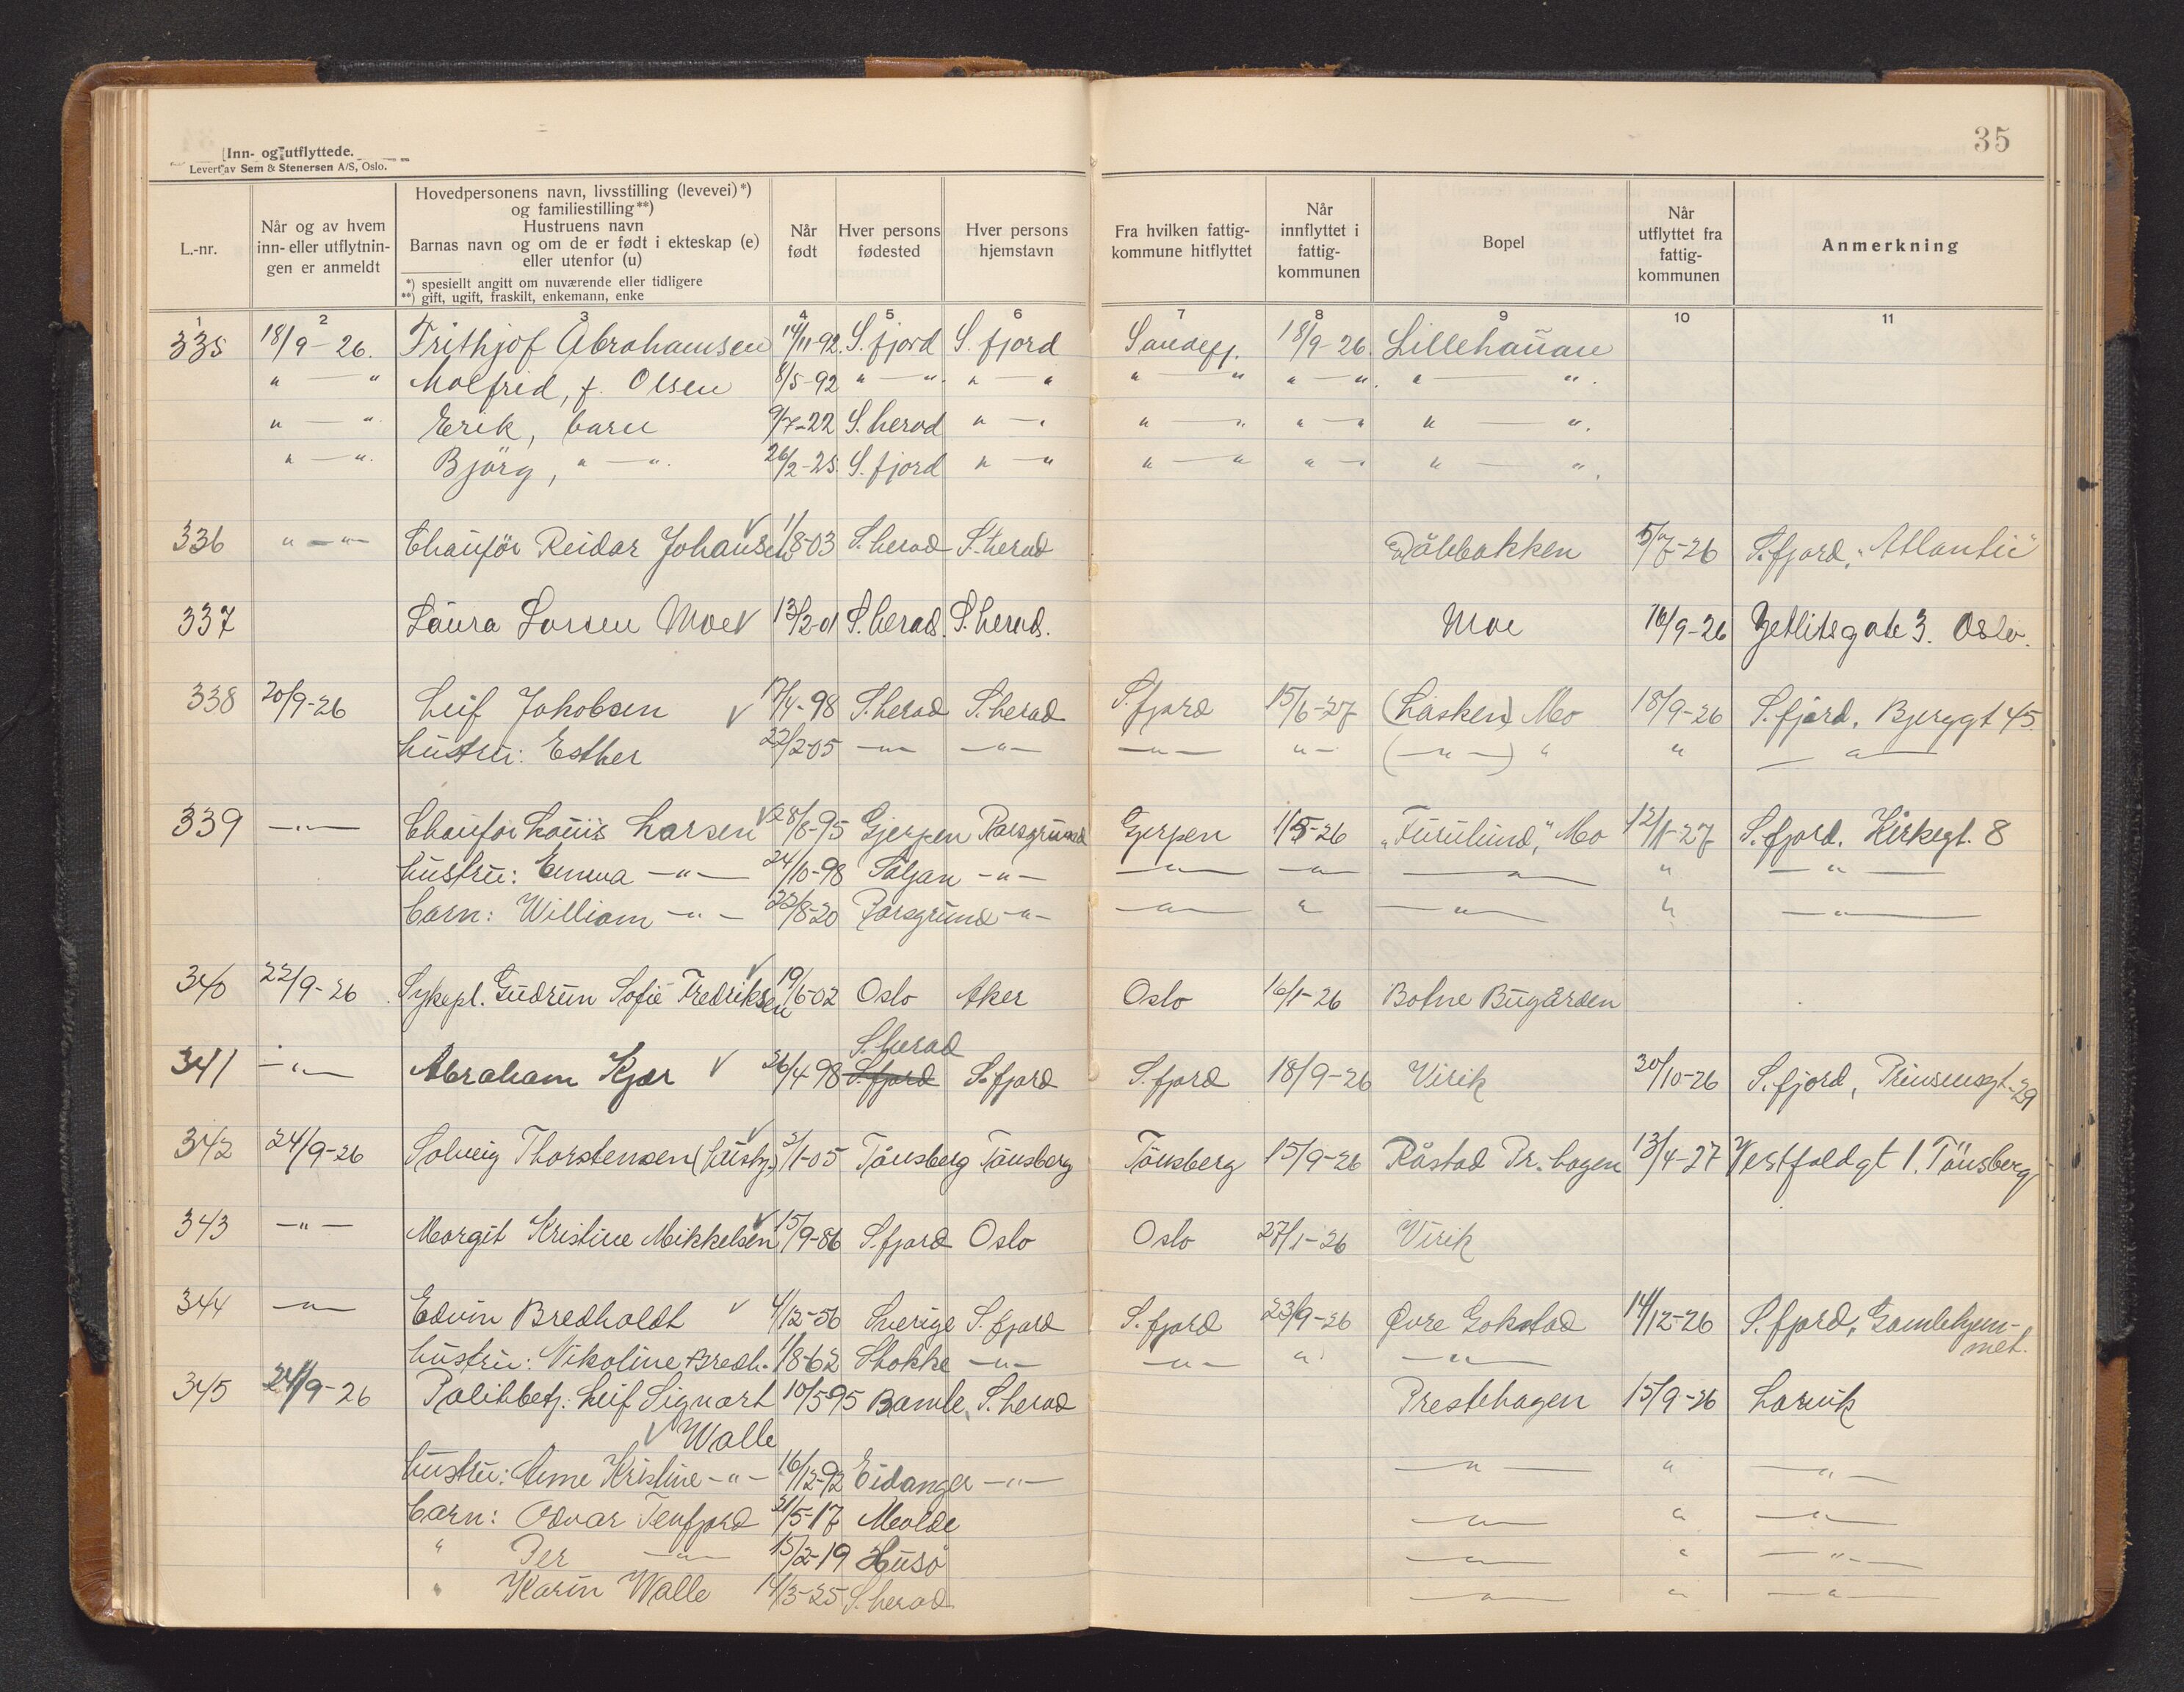 35
Inn- og utflyttede.
Levert av Sem & Stenersen A/S, Oslo.
L.-nr.
Når og av hvem inn- eller utflytningen er anmeldt
Hovedpersonens navn, livsstilling (levevei)*) og familiestilling**)
Hustruens navn
Barnas navn og om de er født i ekteskap (e) eller utenfor (u)
*) spesiellt angitt om nuværende eller tidligere
**) gift, ugift, fraskilt, enkemann, enke
Når født
Hver persons fødested
Hver persons hjemstavn
Fra hvilken fattigkommune hitflyttet
Når innflyttet i fattigkommunen
Bopel
Når utflyttet fra fattigkommunen
Anmerkning
1 2 3 4 5 6 7 8 9 10 11
335 18/9-26. Frithjof Abrahamsen 14/11-92. S. fjord S. fjord Sandefj. 18/9-26. Lillehaugane
" — " Molfrid, f. Olsen 8/5-92 " — " " — " " — " " — " " — "
" — " Erik, barn 9/7-22 S. herad " — " " — " " — " " — "
" — " Björg, " — " 26/2-25 S. fjord " — " " — " " — " " — "
336 " — " Chaufför Reidar Johansen 1/8-03 S. herad S. herad Dålebakken 5/7-26 S. fjord, "Atlantic"
337 Laura Larsen Moe 13/2-01 S. herad. S. herad. Moe 16/9-26 Zetlitsgate 3. Oslo.
338 20/9-26 Leif Jakobsen 17/4-98 S. herad S. herad S. fjord 15/6-27 (Lasken) Mo 18/9-26 S. fjord, Bjeryggt 45.
hustru: Esther 22/2-05 — " — — " — — " — " — (— " —) " " — " —
339 — " — Chaufför Louis Larsen 28/8-95 Gjerpen Porsgrund Gjerpen 1/5-26 "Furulund," Mo 12/1-27 S. fjord. Kirkegt. 8
hustru: Emma — " — 24/10-98 Siljan — " — — " — — " — — " — " — " —
barn: William — " — 22/8-20 Porsgrund — " — — " — " — " — " — " —
340 22/9-26 Sykepl. Gudrun Sofie Fredriksen 19/6-02 Oslo Aker Oslo 16/1-26 Botne Bugården
341 — " — Abraham Kjær 26/4-98 S. herad S. fjord S. fjord S. fjord 18/9-26 Virik 30/10-26 S. fjord, Prinsensgt. 29
342 24/9-26 Solveig Thorstensen (hushj.) 2/1-05 Tönsberg Tönsberg Tönsberg 15/9-26 Råstad Pr. hagen 13/4-27 Vestfoldgt 1, Tönsberg
343 — " — Margit Kristine Mikkelsen 15/9-86 S. fjord Oslo Oslo 27/1-26 Virik
344 — " — Edvin Bredholdt 4/12-56 Sverige S. fjord S. fjord 23/9-26 Øvre Gokstad 14/12-26 S. fjord, Gamlehjemmet.
hustru: Nikoline Bredh. 1/8-62 Stokke — " — — " — " — " —
345 24/9-26 Politibetj. Leif Signart Walle 10/5 95 Bamle S. herad Prestehagen 15/9-26 Larvik
hustru: Anne Kristine — " — 16/12-92 Eidanger — " — — " — " — " —
barn: Odvar Tenfjord 31/5-17 Molde — " — " — " —
" Per — " — 15/2-19 Husø — " — " — " —
" Karin Walle 14/3-25 S. herad — " — " — " —